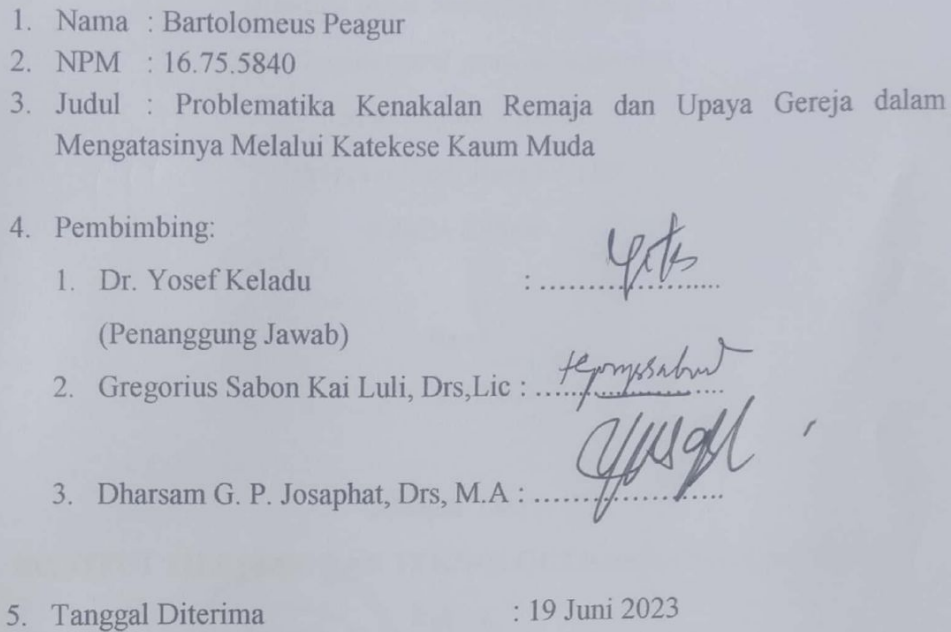 1. Nama : Bartolomeus Peagur
2. NPM : 16.75.5840
3. Judul : Problematika Kenakalan Remaja dan Upaya Gereja dalam
Mengatasinya Melalui Katekese Kaum Muda
4. Pembimbing:
1. Dr. Yosef Keladu : .....................
(Penanggung Jawab)
2. Gregorius Sabon Kai Luli, Drs,Lic : .....................
3. Dharsam G. P. Josaphat, Drs, M.A : .....................
5. Tanggal Diterima : 19 Juni 2023